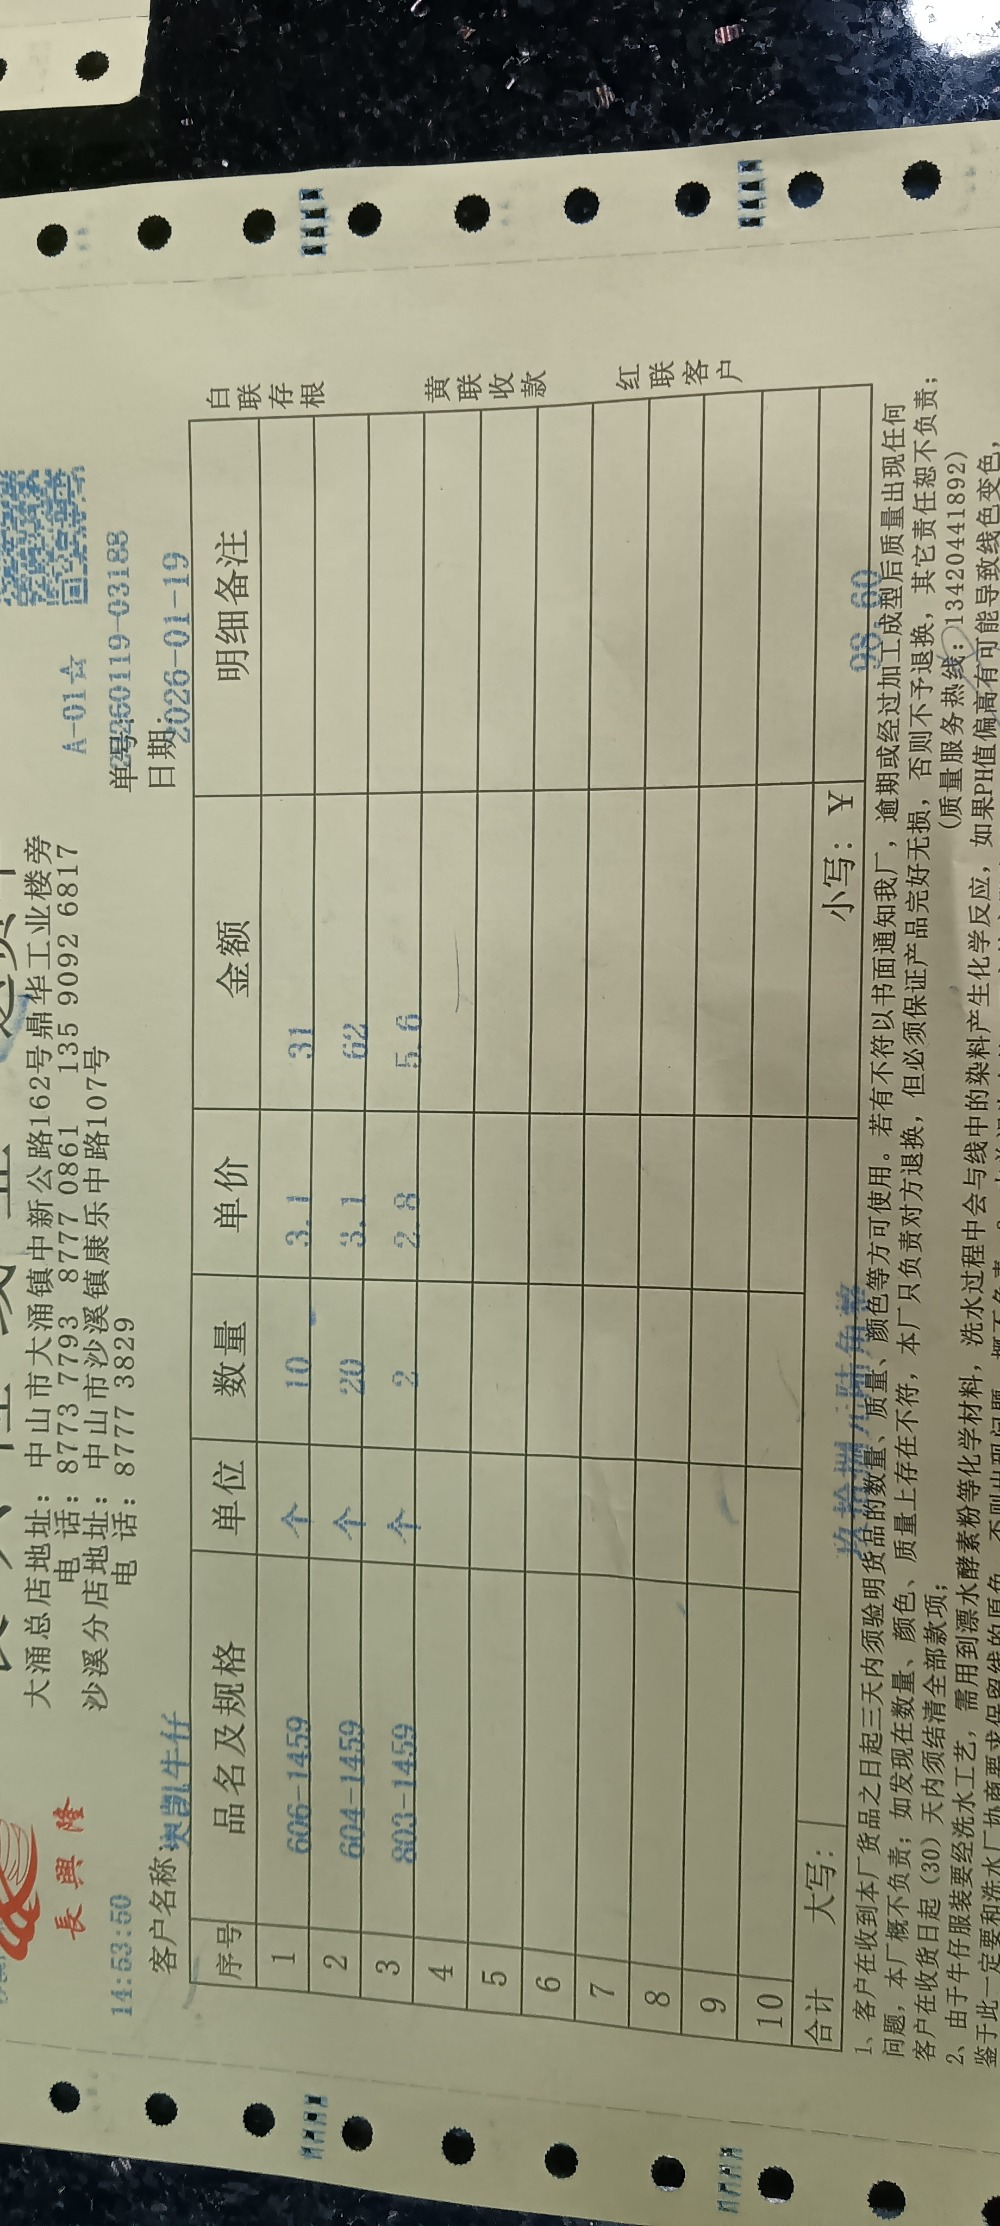 長興隆
大涌总店地址：中山市大涌镇中新公路162号鼎华工业楼旁
电 话：8773 7793 8777 0861 135 9092 6817
沙溪分店地址：中山市沙溪镇康乐中路107号
电 话：8777 3829
A-01☆
14:53:50
单号：260119-03188
客户名称 澳凯牛仔
日期：2026-01-19
序号 品名及规格 单位 数量 单价 金额 明细备注
1 606-1459 个 10 3.1 31
2 604-1459 个 20 3.1 62
3 803-1459 个 2 2.8 5.6
4
5
6
7
8
9
10
合计 大写：玖拾捌元陆角整 小写：¥ 98.60
白联存根
黄联收款
红联客户
1、客户在收到本厂货品之日起三天内须验明货品的数量、质量、颜色等方可使用。若有不符以书面通知我厂，逾期或经过加工成型后质量出现任何
问题，本厂概不负责；如发现在数量、颜色、质量上存在不符，本厂只负责对方退换，但必须保证产品完好无损，否则不予退换，其它责任恕不负责；
客户在收货日起（30）天内须结清全部款项；
（质量服务热线：13420441892）
2、由于牛仔服装要经洗水工艺，需用到漂水酵素粉等化学材料，洗水过程中会与线中的染料产生化学反应，如果PH值偏高有可能导致线色变色，
鉴于此一定要和洗水厂协商要求保留线的原色，否则出现问题，概不负责。